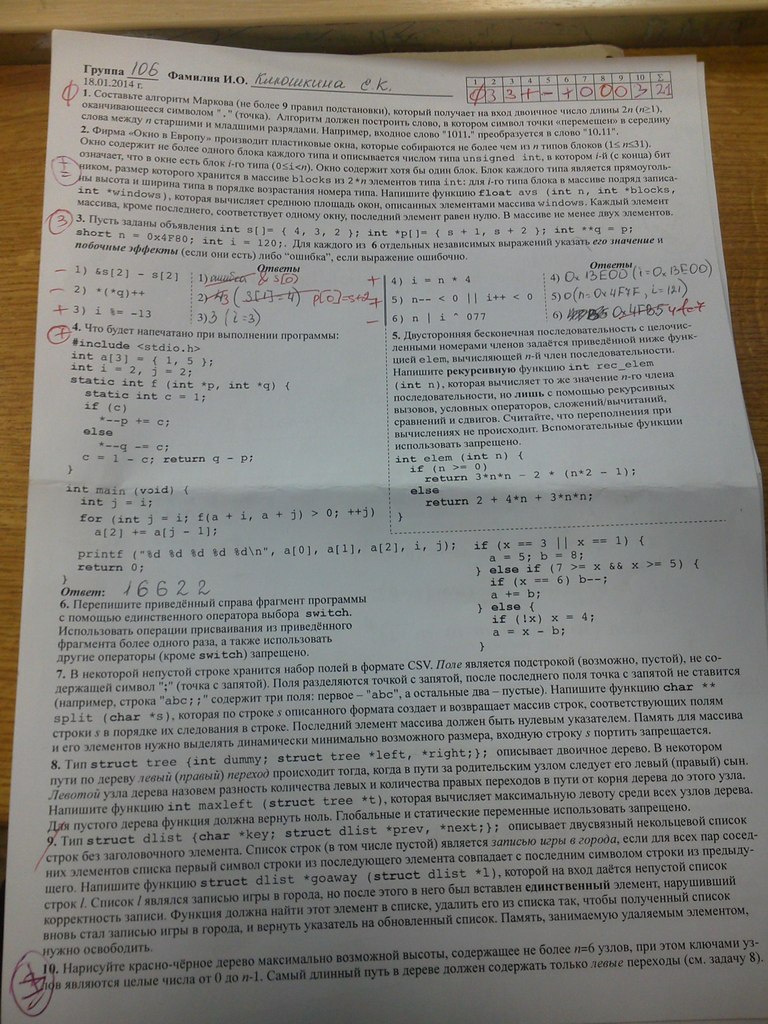 Группа 106 Фамилия И.О. Клюшкина С.К.
18.01.2014 г.
1 2 3 4 5 6 7 8 9 10 Σ
3 3 + - + 0 0 0 3 21
1. Составьте алгоритм Маркова (не более 9 правил подстановки), который получает на вход двоичное число длины 2n (n≥1),
оканчивающееся символом "." (точка). Алгоритм должен построить слово, в котором символ точки «перемещен» в середину
слова между n старшими и младшими разрядами. Например, входное слово "1011." преобразуется в слово "10.11".
2. Фирма «Окно в Европу» производит пластиковые окна, которые собираются не более чем из n типов блоков (1≤ n≤31).
Окно содержит не более одного блока каждого типа и описывается числом типа unsigned int, в котором i-й (с конца) бит
означает, что в окне есть блок i-го типа (0≤i<n). Окно содержит хотя бы один блок. Блок каждого типа является прямоуголь-
ником, размер которого хранится в массиве blocks из 2*n элементов типа int: для i-го типа блока в массиве подряд записа-
ны высота и ширина типа в порядке возрастания номера типа. Напишите функцию float avr (int n, int *blocks,
int *windows), которая вычисляет среднюю площадь окон, описанных элементами массива windows. Каждый элемент
массива, кроме последнего, соответствует одному окну, последний элемент равен нулю. В массиве не менее двух элементов.
3 3. Пусть заданы объявления int s[]= { 4, 3, 2 }; int *p[]= { s + 1, s + 2 }; int **q = p;
short n = 0x4F80; int i = 120;. Для каждого из 6 отдельных независимых выражений указать его значение и
побочные эффекты (если они есть) либо "ошибка", если выражение ошибочно.
Ответы
Ответы
- 1) &s[2] - s[2] 1) ошибка & s[0]
- 2) *(*q)++ 2) 3 (s[1]=4) p[0]=s+2
+ 3) i %= -13 3) 3 (i=3)
+ 4) i = n * 4 4) 0x13E00 (i=0x13E00)
+ 5) n-- < 0 || i++ < 0 5) 0 (n=0x4F7F, i=121)
- 6) n | i ^ 077 6) 0x4F85
4. Что будет напечатано при выполнении программы:
#include <stdio.h>
int a[3] = { 1, 5 };
int i = 2, j = 2;
static int f (int *p, int *q) {
static int c = 1;
if (c)
*--p += c;
else
*--q -= c;
c = 1 - c; return q - p;
}
int main (void) {
int j = i;
for (int j = i; f(a + i, a + j) > 0; ++j)
a[2] += a[j - 1];
printf ("%d %d %d %d %d\n", a[0], a[1], a[2], i, j);
return 0;
}
Ответ: 1 6 6 2 2
5. Двусторонняя бесконечная последовательность с целочис-
ленными номерами членов задаётся приведённой ниже функ-
цией elem, вычисляющей n-й член последовательности.
Напишите рекурсивную функцию int rec_elem
(int n), которая вычисляет то же значение n-го члена
последовательности, но лишь с помощью рекурсивных
вызовов, условных операторов, сложений/вычитаний,
сравнений и сдвигов. Считайте, что переполнения при
вычислениях не происходит. Вспомогательные функции
использовать запрещено.
int elem (int n) {
if (n >= 0)
return 3*n*n - 2 * (n*2 - 1);
else
return 2 + 4*n + 3*n*n;
}
6. Перепишите приведённый справа фрагмент программы
с помощью единственного оператора выбора switch.
Использовать операции присваивания из приведённого
фрагмента более одного раза, а также использовать
другие операторы (кроме switch) запрещено.
if (x == 3 || x == 1) {
a = 5; b = 8;
} else if (7 >= x && x >= 5) {
if (x == 6) b--;
a += b;
} else {
if (!x) x = 4;
a = x - b;
}
7. В некоторой непустой строке хранится набор полей в формате CSV. Поле является подстрокой (возможно, пустой), не со-
держащей символ ";" (точка с запятой). Поля разделяются точкой с запятой, после последнего поля точка с запятой не ставится
(например, строка "abc;;" содержит три поля: первое – "abc", а остальные два – пустые). Напишите функцию char **
split (char *s), которая по строке s описанного формата создает и возвращает массив строк, соответствующих полям
строки s в порядке их следования в строке. Последний элемент массива должен быть нулевым указателем. Память для массива
и его элементов нужно выделять динамически минимально возможного размера, входную строку s портить запрещается.
8. Тип struct tree {int dummy; struct tree *left, *right;}; описывает двоичное дерево. В некотором
пути по дереву левый (правый) переход происходит тогда, когда в пути за родительским узлом следует его левый (правый) сын.
Левотой узла дерева назовем разность количества левых и количества правых переходов в пути от корня дерева до этого узла.
Напишите функцию int maxleft (struct tree *t), которая вычисляет максимальную левоту среди всех узлов дерева.
Для пустого дерева функция должна вернуть ноль. Глобальные и статические переменные использовать запрещено.
9. Тип struct dlist {char *key; struct dlist *prev, *next;}; описывает двусвязный некольцевой список
строк без заголовочного элемента. Список строк (в том числе пустой) является записью игры в города, если для всех пар сосед-
них элементов списка первый символ строки из последующего элемента совпадает с последним символом строки из предыду-
щего. Напишите функцию struct dlist *goaway (struct dlist *l), которой на вход даётся непустой список
строк l. Список l являлся записью игры в города, но после этого в него был вставлен единственный элемент, нарушивший
корректность записи. Функция должна найти этот элемент в списке, удалить его из списка так, чтобы полученный список
вновь стал записью игры в города, и вернуть указатель на обновленный список. Память, занимаемую удаляемым элементом,
нужно освободить.
10. Нарисуйте красно-чёрное дерево максимально возможной высоты, содержащее не более n=6 узлов, при этом ключами уз-
лов являются целые числа от 0 до n-1. Самый длинный путь в дереве должен содержать только левые переходы (см. задачу 8).